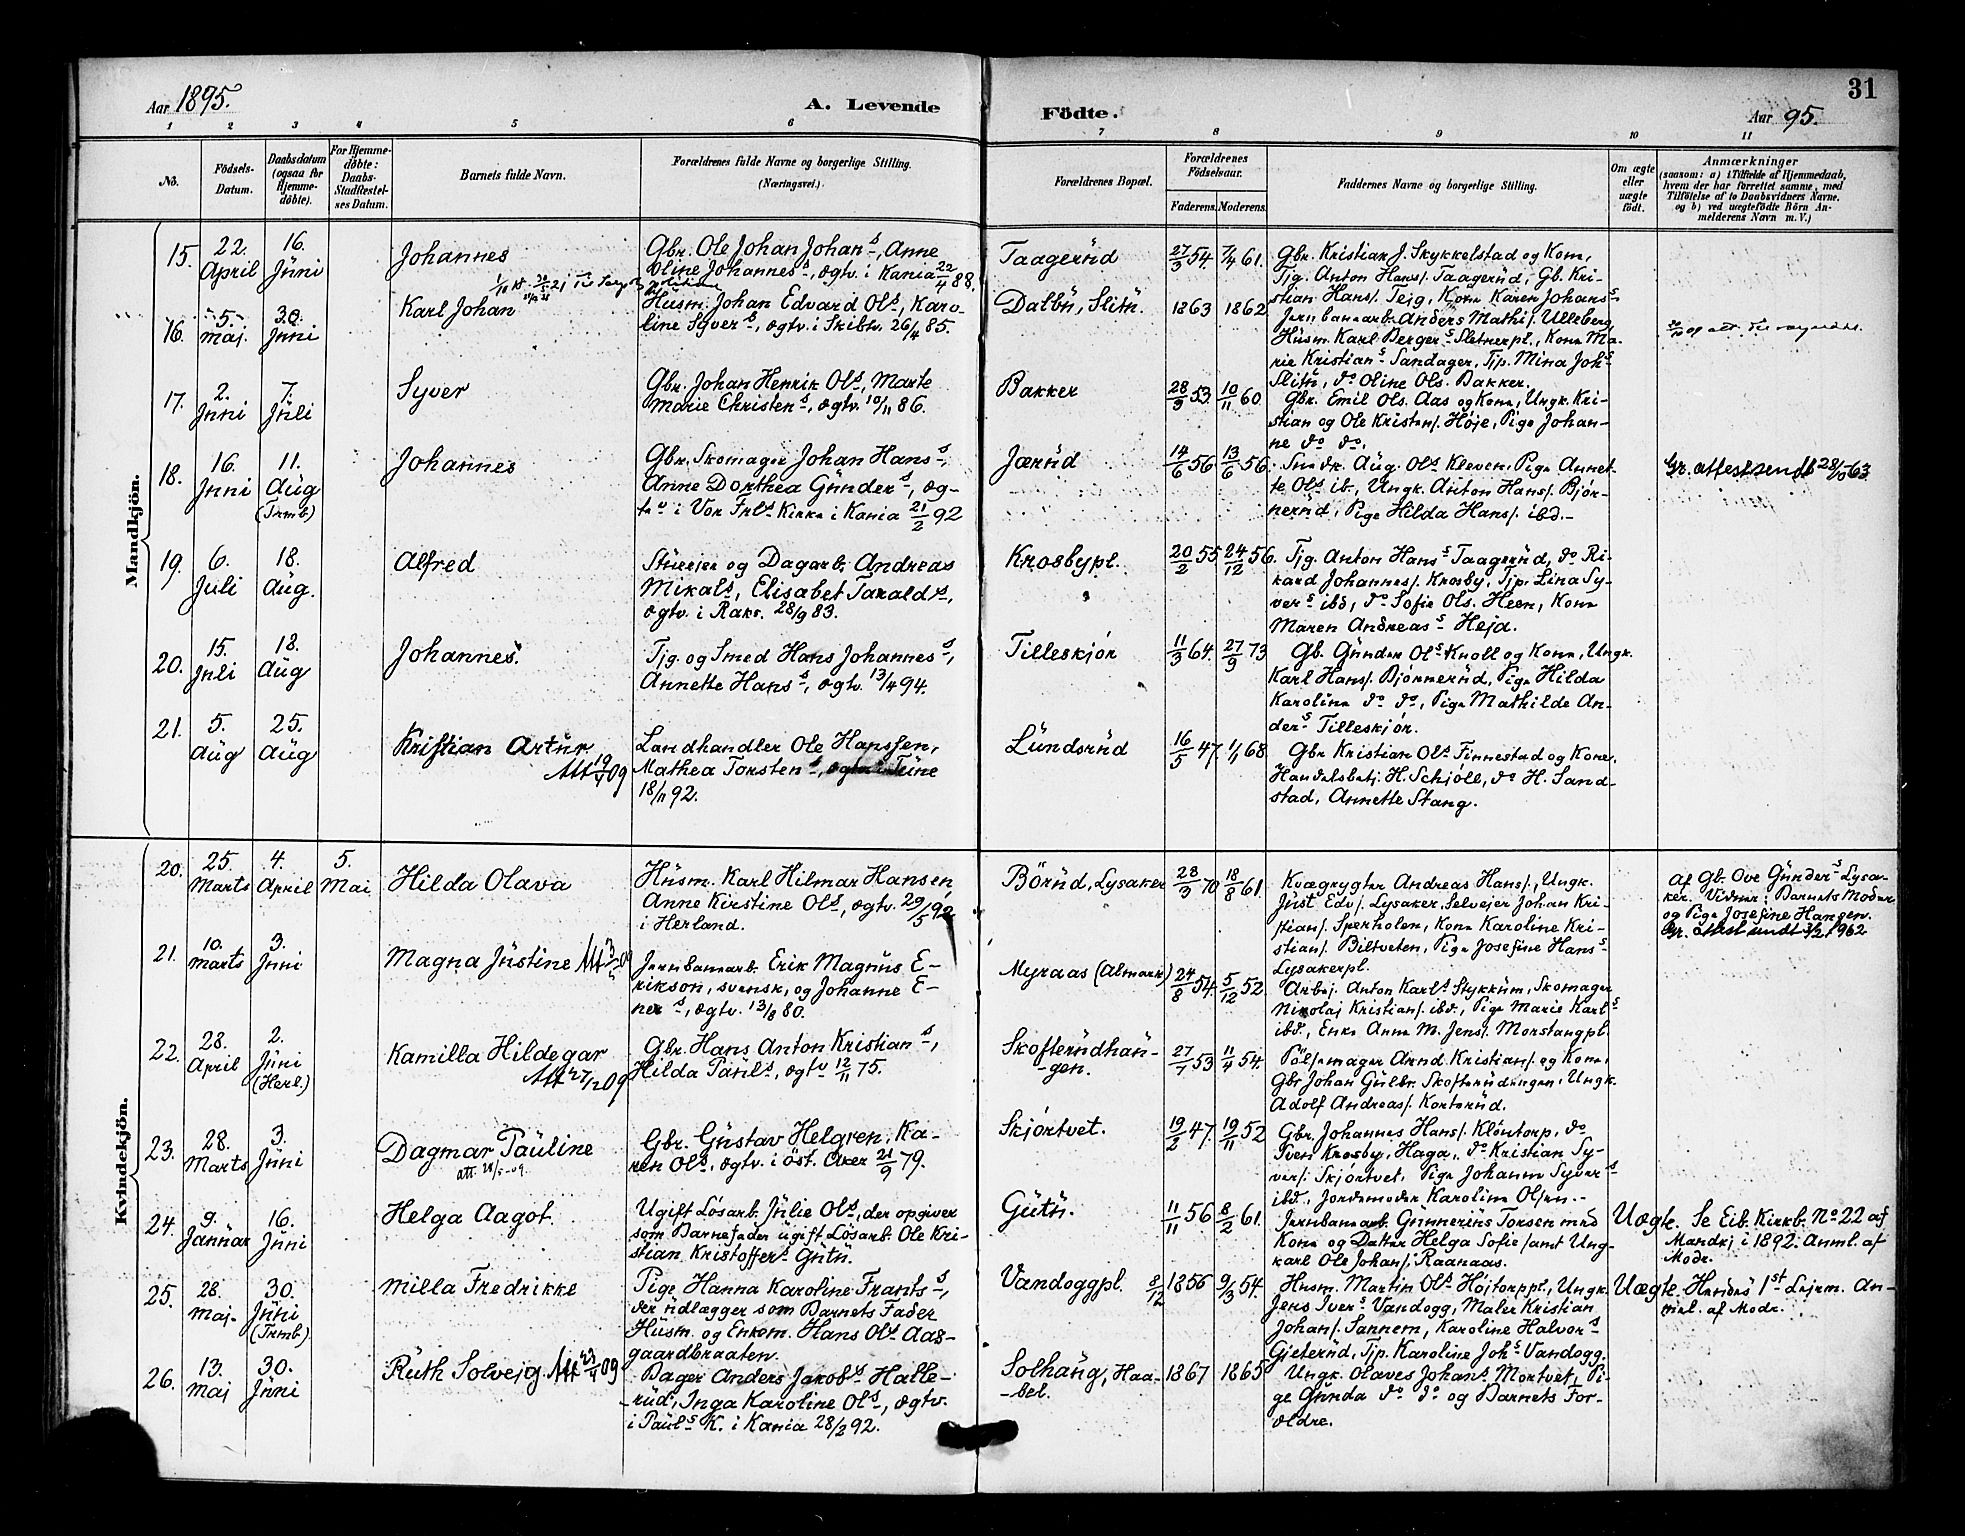 31
Aar 1895.
A. Levende
Födte.
Aar 95.
1 2 3 4 5 6 7 8 9 10 11
No.
Födsels-
Datum.
Daabsdatum
(ogsaa for
Hjemme-
døbte).
For Hjemme-
døbte:
Daabs-
Stadfestel-
ses Datum.
Barnets fulde Navn.
Forældrenes fulde Navne og borgerlige Stilling.
(Næringsvei.)
Forældrenes Bopæl.
Forældrenes
Födselsaar.
Faderens. Moderens.
Faddernes Navne og borgerlige Stilling.
Om ægte
eller
uægte
født.
Anmærkninger
(saasom: a) i Tilfælde af Hjemmedaab,
hvem der har forrettet samme, med
Tilföielse af to Daabsvidners Navne.
og b) ved uægtefödte Börn An-
melderens Navn m. V.)
Mandkjön.
15. 22. April 16. Jŭni
Johannes
Gbr. Ole Johan Johans, Anne
Oline Johanness, ægtv. i Kania 22/4 88.
Taagerŭd
27/3 54. 7/4 61.
Gbr. Kristian J. Skykkelstad og Kone,
Tjg. Anton Hans/. Taagerŭd, Gb. Kri-
stian Hans/. Tejg, Kone Karen Johans
16. 5. Maj. 30. Jŭni
Karl Johan
Hŭsm. Johan Edvard Ols, Karo-
line Syvers, ægtv. i Skibtv. 26/4 85.
Dalbŭ, Slitŭ.
1863 1862
Jernbanearb. Anders Mathi/. Ulleberg,
Hŭsm. Karl Bergers Sletnerpl., Kone Ma-
rie Kristians Sandager, Tjp. Mina Johs
Slitŭ, do Oline Ols. Bakker.
17. 2. Jŭni 7. Jŭli
Syver
Gbr. Johan Henrik Ols, Marte
Marie Christens, ægtv. 10/11 86.
Bakker
28/9 53. 10/11 60
Gbr. Emil Ols. Aas og Kone, Ungk. Kri-
stian og Ole Kristen/. Høje, Pige Johan-
ne do do.
18. 16. Jŭni 11. Aŭg (Trmb)
Johannes
Gbr. Skomager Johan Hans,
Anne Dorthea Gŭnders, æg-
tv i Vor Frls Kirke i Kania 21/2 92
Jærŭd
14/6 56 13/6 56.
Smedk. Aŭg. Ols Kleven, Pige Annet-
te Ols ib., Ungk. Anton Hans/. Bjør-
nerŭd, Pige Hilda Hans/. ibd.-
Gr. attest sendt 28/10 63
19. 6. Juli 18. Aŭg.
Alfred
Stŭeejer og Dagarb. Andreas
Mikals, Elisabet Taralds,
ægtv. i Raks. 28/9 83.
Krosbypl.
20/2 55 24/12 56.
Tjg. Anton Hans Taagerŭd, do Ri-
kard Johannes/. Krosby, Tjp. Lina Sy-
vers ibd, do Sofie Ols. Heen, Kone
Maren Andreas Hejd.
20. 15. Juli 18. Aŭg
Johannes.
Tjg. og Smed Hans Johannes,
Annette Hans, ægtv. 13/4 94.
Tilleskjør
11/3 64. 27/9 73
Gb. Gŭnder Ols Knoll og Kone, Ungk.
Karl Hans/. Bjønnerŭd, Pige Hilda
Karoline do do, Pige Mathilde An-
ders Tilleskjør.
21. 5. Aŭg 25. Aŭg
Kristian Artŭr
Att 19/7 09
Landhandler Ole Hanssen,
Mathea Torstens, ægtv. i Tŭne
18/11 92.
Lŭndsrŭd
16/5 47. 1/1 68.
Gbr. Kristian Ols Finnestad og Kone,
Handelsbetj. H. Schjøll, do H. Sand-
stad, Annette Stang.
Kvindekjön.
20. 25. Marts 4. April 5. Mai
Hilda Olava
Hŭsm. Karl Hilmar Hansen,
Anne Kirstine Ols, ægtv. 29/5 92
i Herland.
Börŭd, Lysaker
28/3 70 18/8 61.
Kvægrygter Andreas Hans/., Ungk.
Jŭst Edv/. Lysaker, Selvejer Johan Kri-
stian/. Sperholen, Kone Karoline Kri-
stian/. Biltveten, Pige Josefine Hans
Lysakerpl.
af Gb. Ove Gŭnders Lysa-
ker. Vidner: Barnets Moder
og Pige Josefine Hansen.
Gr. attest sendt 3/2 1962
21. 10. Marts 3. Jŭni
Magna Jŭstine Att 3/5 09
Jernbanearb. Erik Magnŭs E-
rikson, svensk, og Johanne E-
ners, ægtv. 13/8 80.
Myraas (Almark)
24/8 54. 5/12 52.
Arbej. Anton Karls Stykkŭm, Skomager
Nikolaj Kristian/. ibd., Pige Marie Karls
ibd., Enke Anne M. Jens/. Morstangpl.
22. 28. April 2. Jŭni (Herl.)
Kamilla Hildegar
Att 27/12 09
Gbr. Hans Anton Kristians,
Hilda Paŭls, ægtv 12/11 75.
Skofterŭdhŭn-
gen.
27/7 53 11/4 54.
Pölsemager Arnd. Kristian/. og Kone,
Gbr. Johan Gŭlbr. Skofterŭdengen, Ungk.
Adolf Andreas/. Korterŭd.
23. 28. Marts 3. Jŭni
Dagmar Paŭline
att. 24/5-09.
Gbr. Gŭstav Helgren, Ka-
ren Ols, ægtv. i Öst. Aker 21/9 79.
Skjørtvet.
19/2 47. 19/11 52
Gbr. Johannes Hans/. Kløntorp, do
Sven Krosby, Haga, do Kristian Sy-
vers/. Skjørtvet, Pige Johanne Syvers
ibd., Jordemoder Karoline Olsen.-
24. 9. Janŭar 16. Jŭni
Helga Aagot.
Ugift Løsarb. Jŭlie Ols, der opgiver
som Barnefader ugift Lösarb. Ole Kri-
stian Kristoffers Gŭtŭ.
Gŭtŭ.
11/11 56 8/2 61.
Jernbanearb. Gŭnnerius Torsen med
Kone og Datter Helga Sofie samt Ung-
karl Ole Johan/. Raanaas.
Uægte.
Se Eib. Kirkb. No 22 af
Mandkj i 1892. Anml. af
Modr.
25. 28. Maj. 30. Jŭni (Trmb)
Milla Fredrikke
Pige Hanna Karoline Frants,
der ŭdlægger som Barnets Fader
Hŭsm. og Enkem. Hans Ols Aas-
gaardbraaten.
Vandoggpl.
8/12 1856 9/3 54.
Husm. Martin Ols Højtorppl., Ungk.
Jens Ivers Vandogg, Maler Kristian
Johan/. Sannem, Karoline Halvors
Gjeterŭd, Tjp. Karoline Johs Vandogg.
Uægte.
Hendes 1st Lejrm. An-
mel. af Modr.
26. 13. Maj 30. Jŭni
Rŭth Solvejg Att 23/4 09
Bager Anders Jakobs Halle-
rŭd, Inga Karoline Ols, ægtv.
i Paŭls K. i Kania 28/2 92.
Solhaŭg, Haa-
bel.
1867 1865
Ungk. Olaves Johans Mortvet, Pi-
ge Gŭnda do do og Barnets For-
ældre.